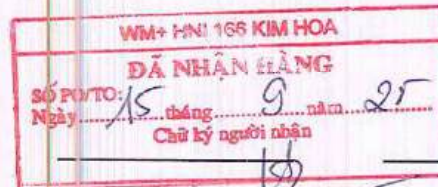 WM+ HNI 166 KIM HOA
ĐÃ NHẬN HÀNG
SỐ PO/TO:
Ngày 15 tháng 9 năm 25
Chữ ký người nhận